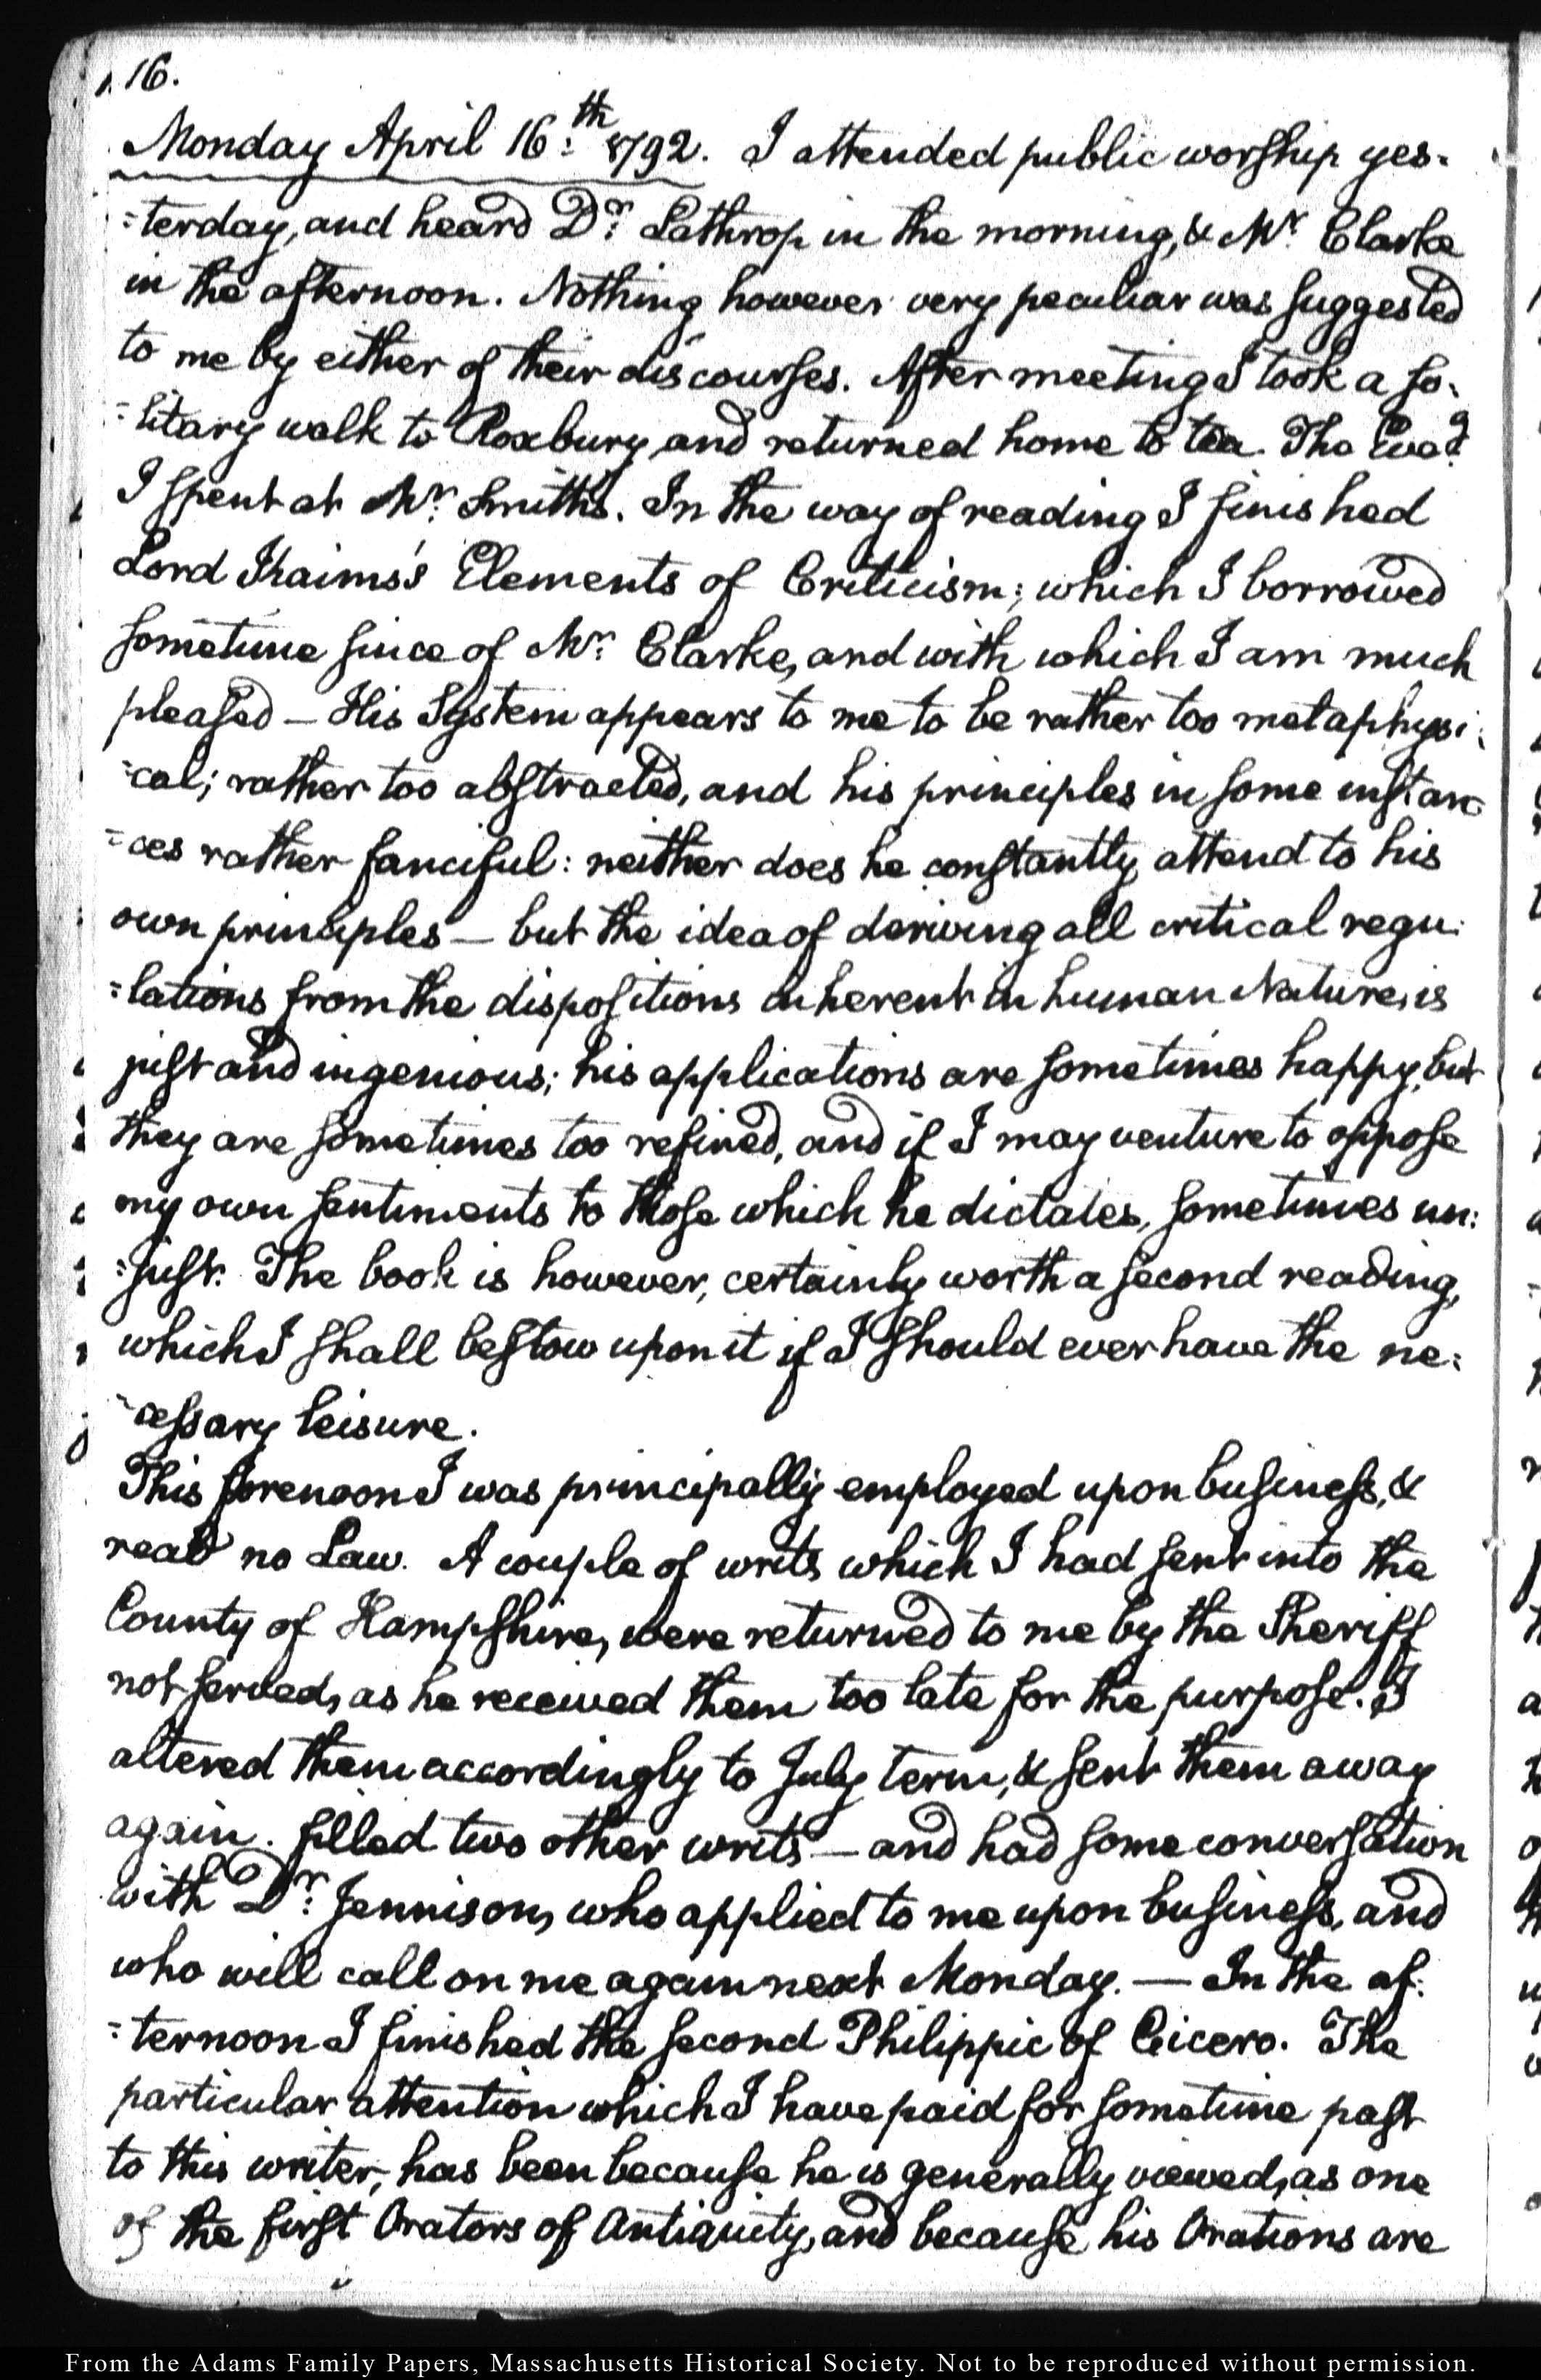 16.
Monday April 16th: 1792. I attended public worship yes-
-terday, and heard Dr: Lathrop in the morning, & Mr: Clarke
in the afternoon. Nothing however very peculiar was suggested
to me by either of their discourses. After meeting I took a so-
-litary walk to Roxbury and returned home to tea. The Eveg:
I spent at Mr: Smith's. In the way of reading I finished
Lord Kaims's Elements of Criticism; which I borrowed
sometime since of Mr: Clarke, and with which I am much
pleased — His System appears to me to be rather too metaphysi-
-cal; rather too abstracted, and his principles in some instan-
-ces rather fanciful: neither does he constantly attend to his
own principles — but the idea of deriving all critical regu-
-lations from the dispositions inherent in human Nature, is
just and ingenious; his applications are sometimes happy, but
they are sometimes too refined, and if I may venture to oppose
my own sentiments to those which he dictates, sometimes un-
-just. The book is however, certainly worth a second reading,
which I shall bestow upon it if I should ever have the ne-
-cessary leisure.
This forenoon I was principally employed upon business, &
read no Law. A couple of writs which I had sent into the
County of Hampshire, were returned to me by the Sheriff
not served, as he received them too late for the purpose. I
altered them accordingly to July term, & sent them away
again. filled two other writs — and had some conversation
with Dr: Jennison, who applied to me upon business, and
who will call on me again next Monday. — In the af-
-ternoon I finished the second Philippic of Cicero. The
particular attention which I have paid for sometime past
to this writer, has been because he is generally viewed, as one
of the first Orators of Antiquity, and because his Orations are
From the Adams Family Papers, Massachusetts Historical Society. Not to be reproduced without permission.